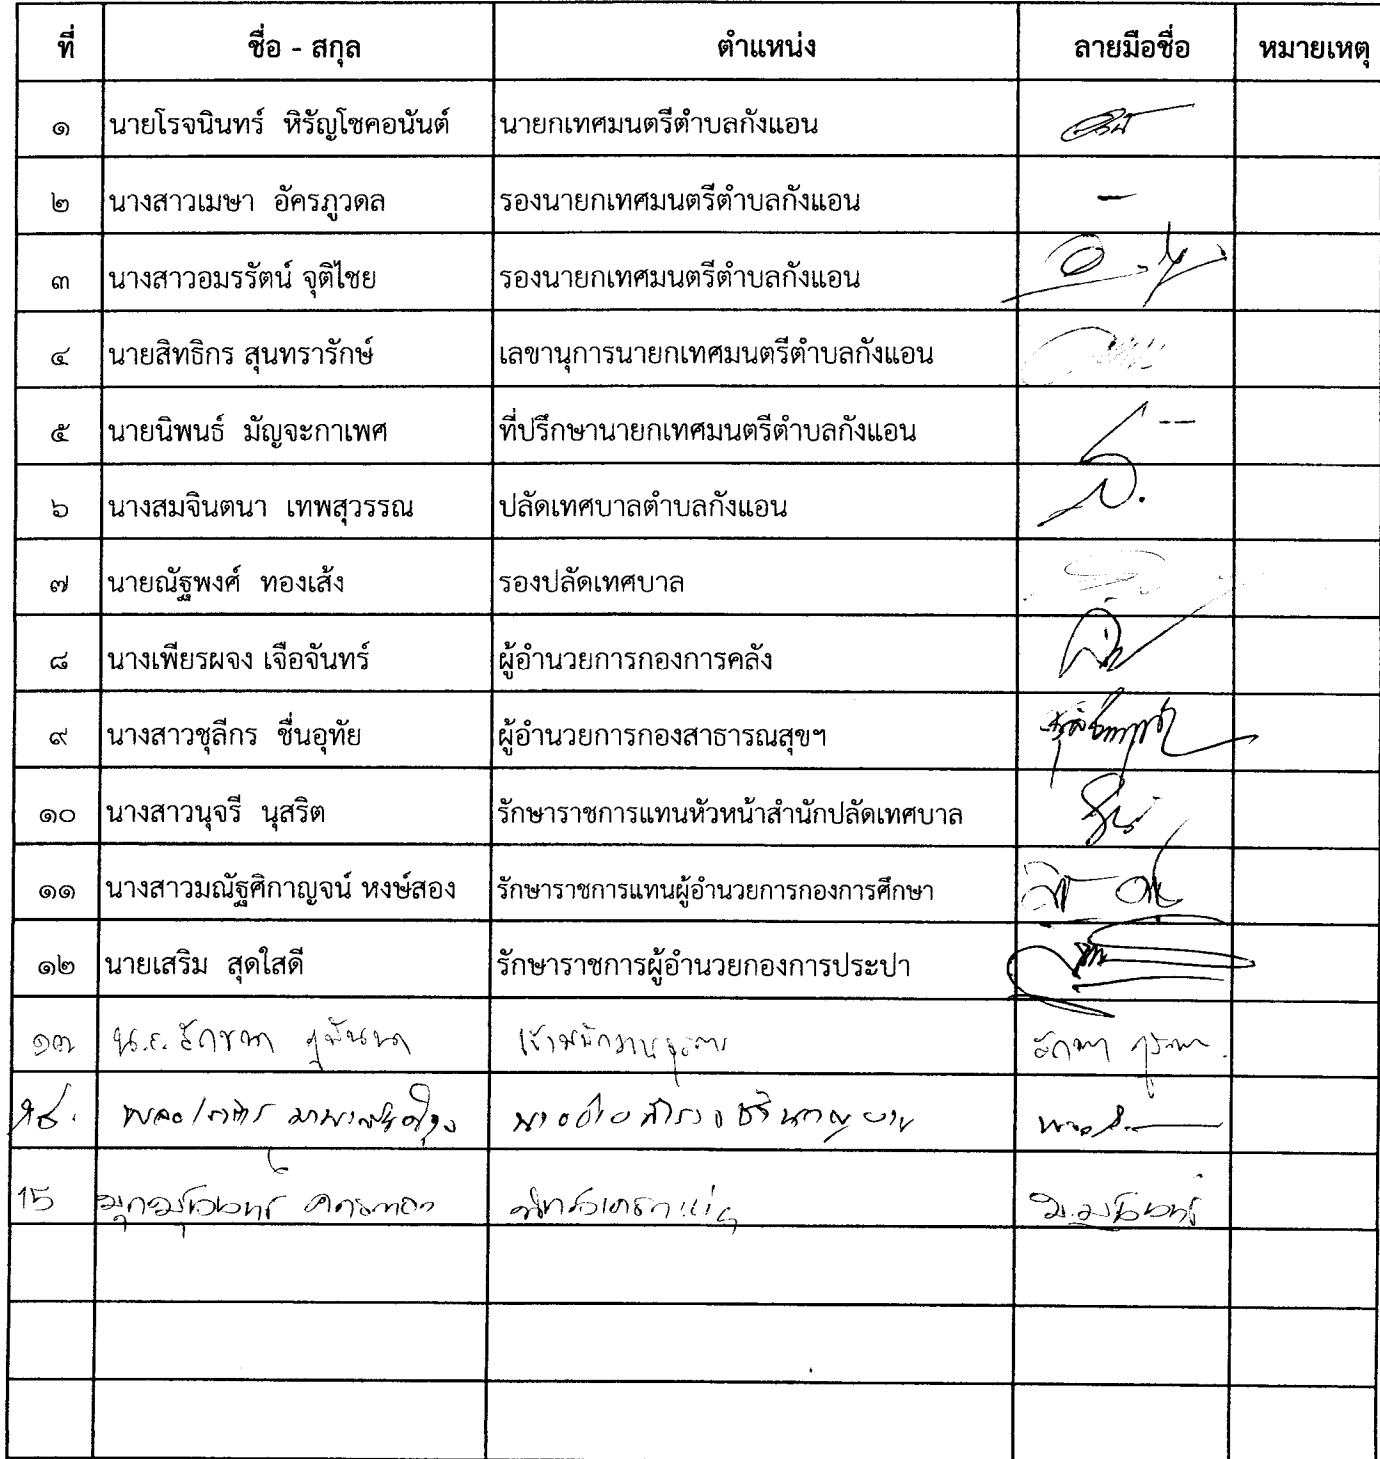 ที่ ชื่อ - สกุล ตำแหน่ง ลายมือชื่อ หมายเหตุ
๑ นายโรจนินทร์ หิรัญโชคอนันต์ นายกเทศมนตรีตำบลกังแอน
๒ นางสาวเมษา อัครภูวดล รองนายกเทศมนตรีตำบลกังแอน -
๓ นางสาวอมรรัตน์ จุติไชย รองนายกเทศมนตรีตำบลกังแอน
๔ นายสิทธิกร สุนทรารักษ์ เลขานุการนายกเทศมนตรีตำบลกังแอน
๕ นายนิพนธ์ มัญจะกาเพศ ที่ปรึกษานายกเทศมนตรีตำบลกังแอน
๖ นางสมจินตนา เทพสุวรรณ ปลัดเทศบาลตำบลกังแอน
๗ นายณัฐพงศ์ ทองเส้ง รองปลัดเทศบาล
๘ นางเพียรผจง เจือจันทร์ ผู้อำนวยการกองการคลัง
๙ นางสาวชุลีกร ชื่นอุทัย ผู้อำนวยการกองสาธารณสุขฯ
๑๐ นางสาวนุจรี นุสริต รักษาราชการแทนหัวหน้าสำนักปลัดเทศบาล
๑๑ นางสาวมณัฐศิกาญจน์ หงษ์สอง รักษาราชการแทนผู้อำนวยการกองการศึกษา
๑๒ นายเสริม สุดใสดี รักษาราชการผู้อำนวยกองการประปา
๑๓ น.ส. เจ้าพนักงานธุรการ
๑๔.
15